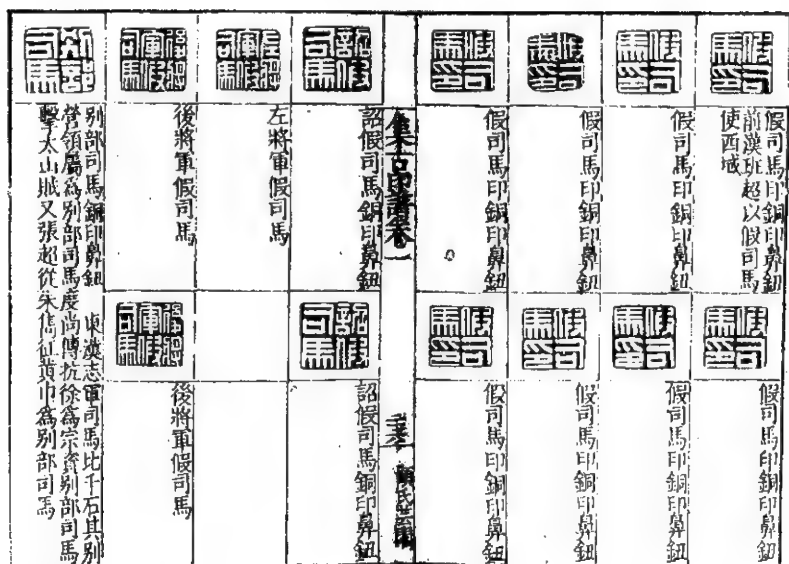 假司馬印
假司馬印銅印鼻鈕
前漢班超以假司馬
使西域
假司馬印
假司馬印銅印鼻鈕
假司馬印
假司馬印銅印鼻鈕
假司馬印
假司馬印銅印鼻鈕
假司馬印
假司馬印銅印鼻鈕
假司馬印
假司馬印銅印鼻鈕
假司馬印
假司馬印銅印鼻鈕
假司馬印
假司馬印銅印鼻鈕
集古印譜卷一
顧氏芸閣
詔假司馬
詔假司馬銅印鼻鈕
詔假司馬
詔假司馬銅印鼻鈕
左將軍假司馬
左將軍假司馬
後將軍假司馬
後將軍假司馬
後將軍假司馬
後將軍假司馬
別部司馬
別部司馬銅印鼻鈕 東漢志軍司馬比千石其別
營領屬為別部司馬度尚傳抗徐為宗資別部司馬
擊太山賊又張超從朱儁征黃巾為別部司馬